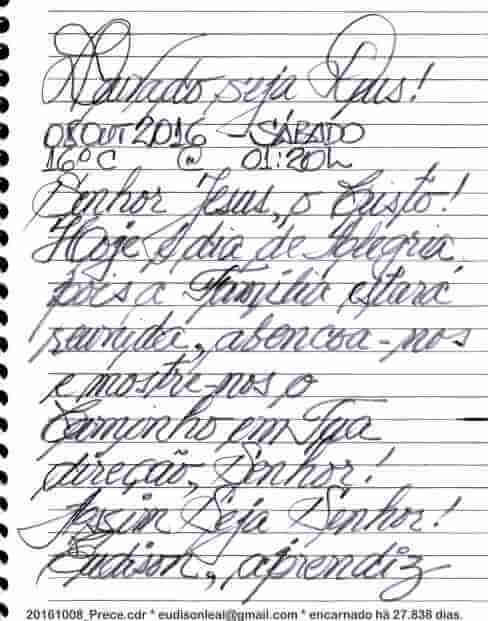 Louvado seja Deus!
08 OUT 2016 - SÁBADO
16º C @ 01:20h
Senhor Jesus, o Cristo!
Hoje é dia de Alegria
pois a Família estará
reunida, abençoa-nos
e mostre-nos o
Caminho em Tua
direção, Senhor!
Assim Seja Senhor!
Eudison, aprendiz
20161008_Prece.cdr * eudisonleal@gmail.com * encarnado há 27.838 dias.